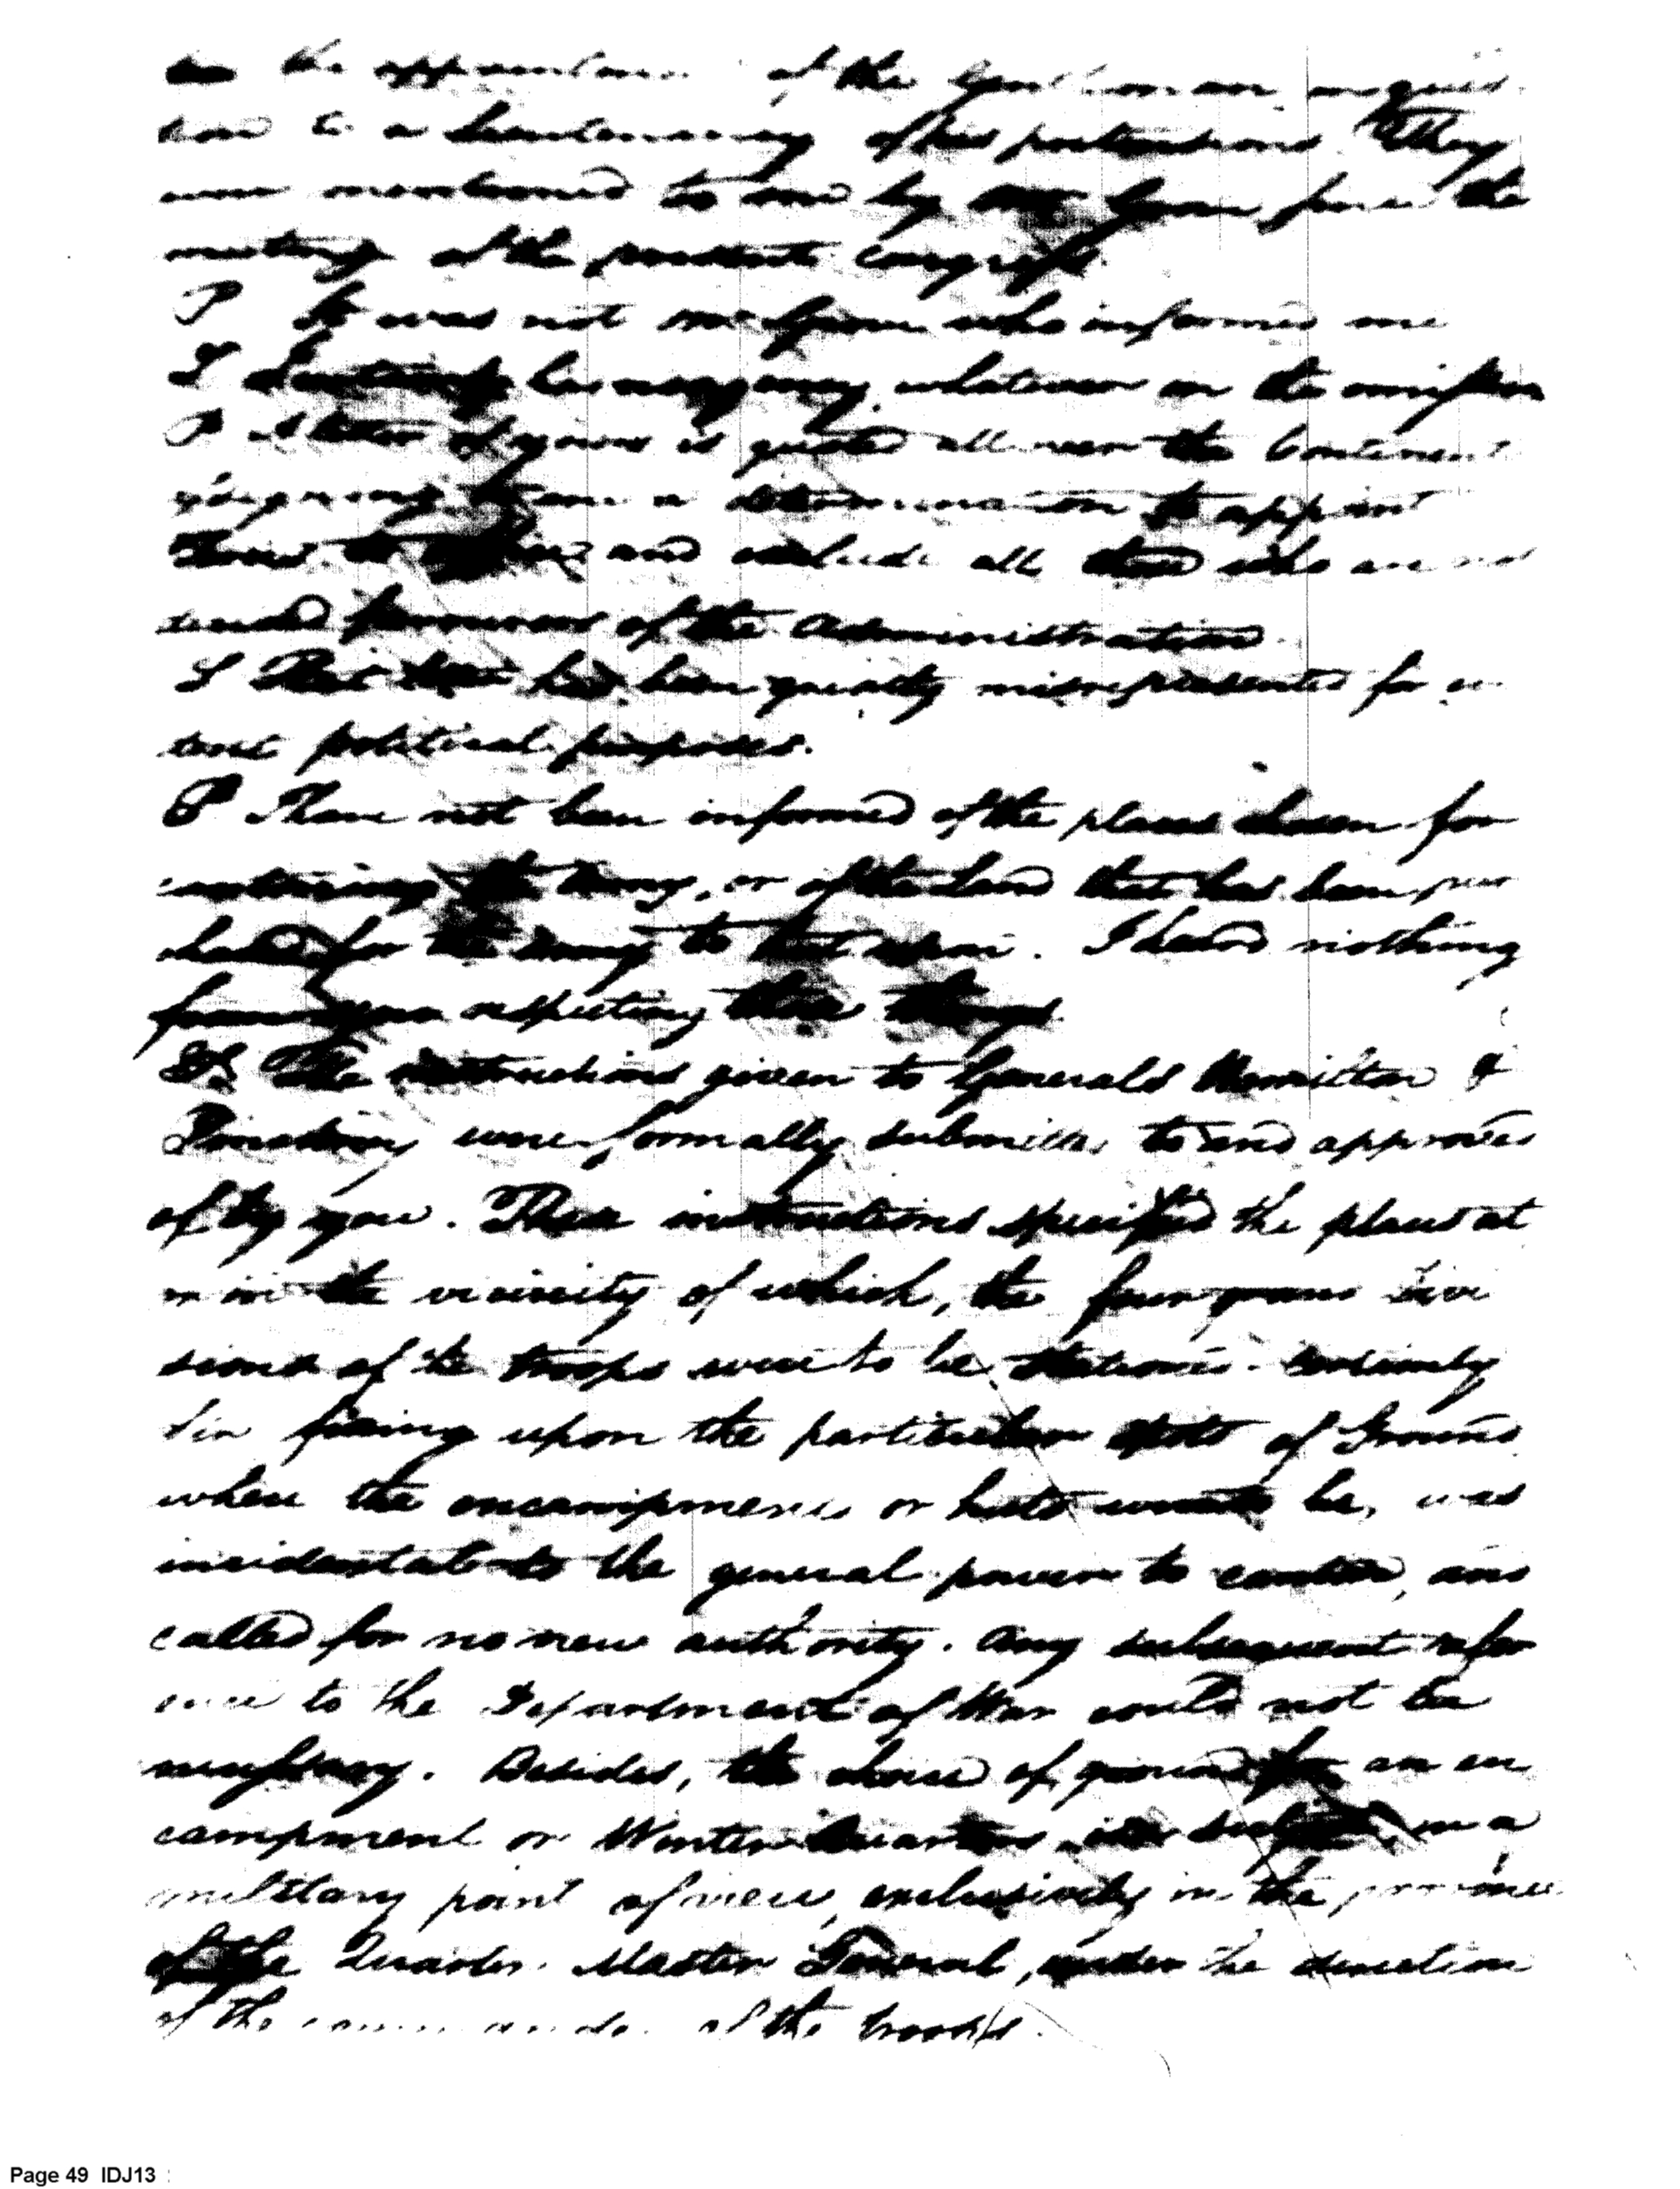 the of the Gentleman in ques
tion to a Lieutenancy of his pretentions They
were mentioned to me by the
meeting of the present Congress.
P It was not who informed me
S I had no agency whatever in the omission
P A letter of yours is quoted all over the Continent
a determination to appoint
and exclude all those who are not
of the Administration
S That letter has been greatly misrepresented for
political purposes.
P I have not been informed of the places chosen for
cantoning the Army, or of the Land that has been pur
chased for the Army to hut upon. I heard nothing
from you respecting these things
S The instructions given to Generals Hamilton &
Pinckney were formally submitted to and approved
of by you. These instructions specified the places at
or in the vicinity of which, the four grand divi
sions of the troops were to be stationed. Certainly
fixing upon the particular spots of Ground
where the encampments or huts would be, was
incidental to the general power to canton, and
called for no new authority. Any subsequent refer
ence to the Department of War could not be
necessary. Besides, the choice of ground for an en
campment or Winter Quarters in a
military point of view, exclusively in the province
of the Quarter Master General, under the direction
of the of the troops.